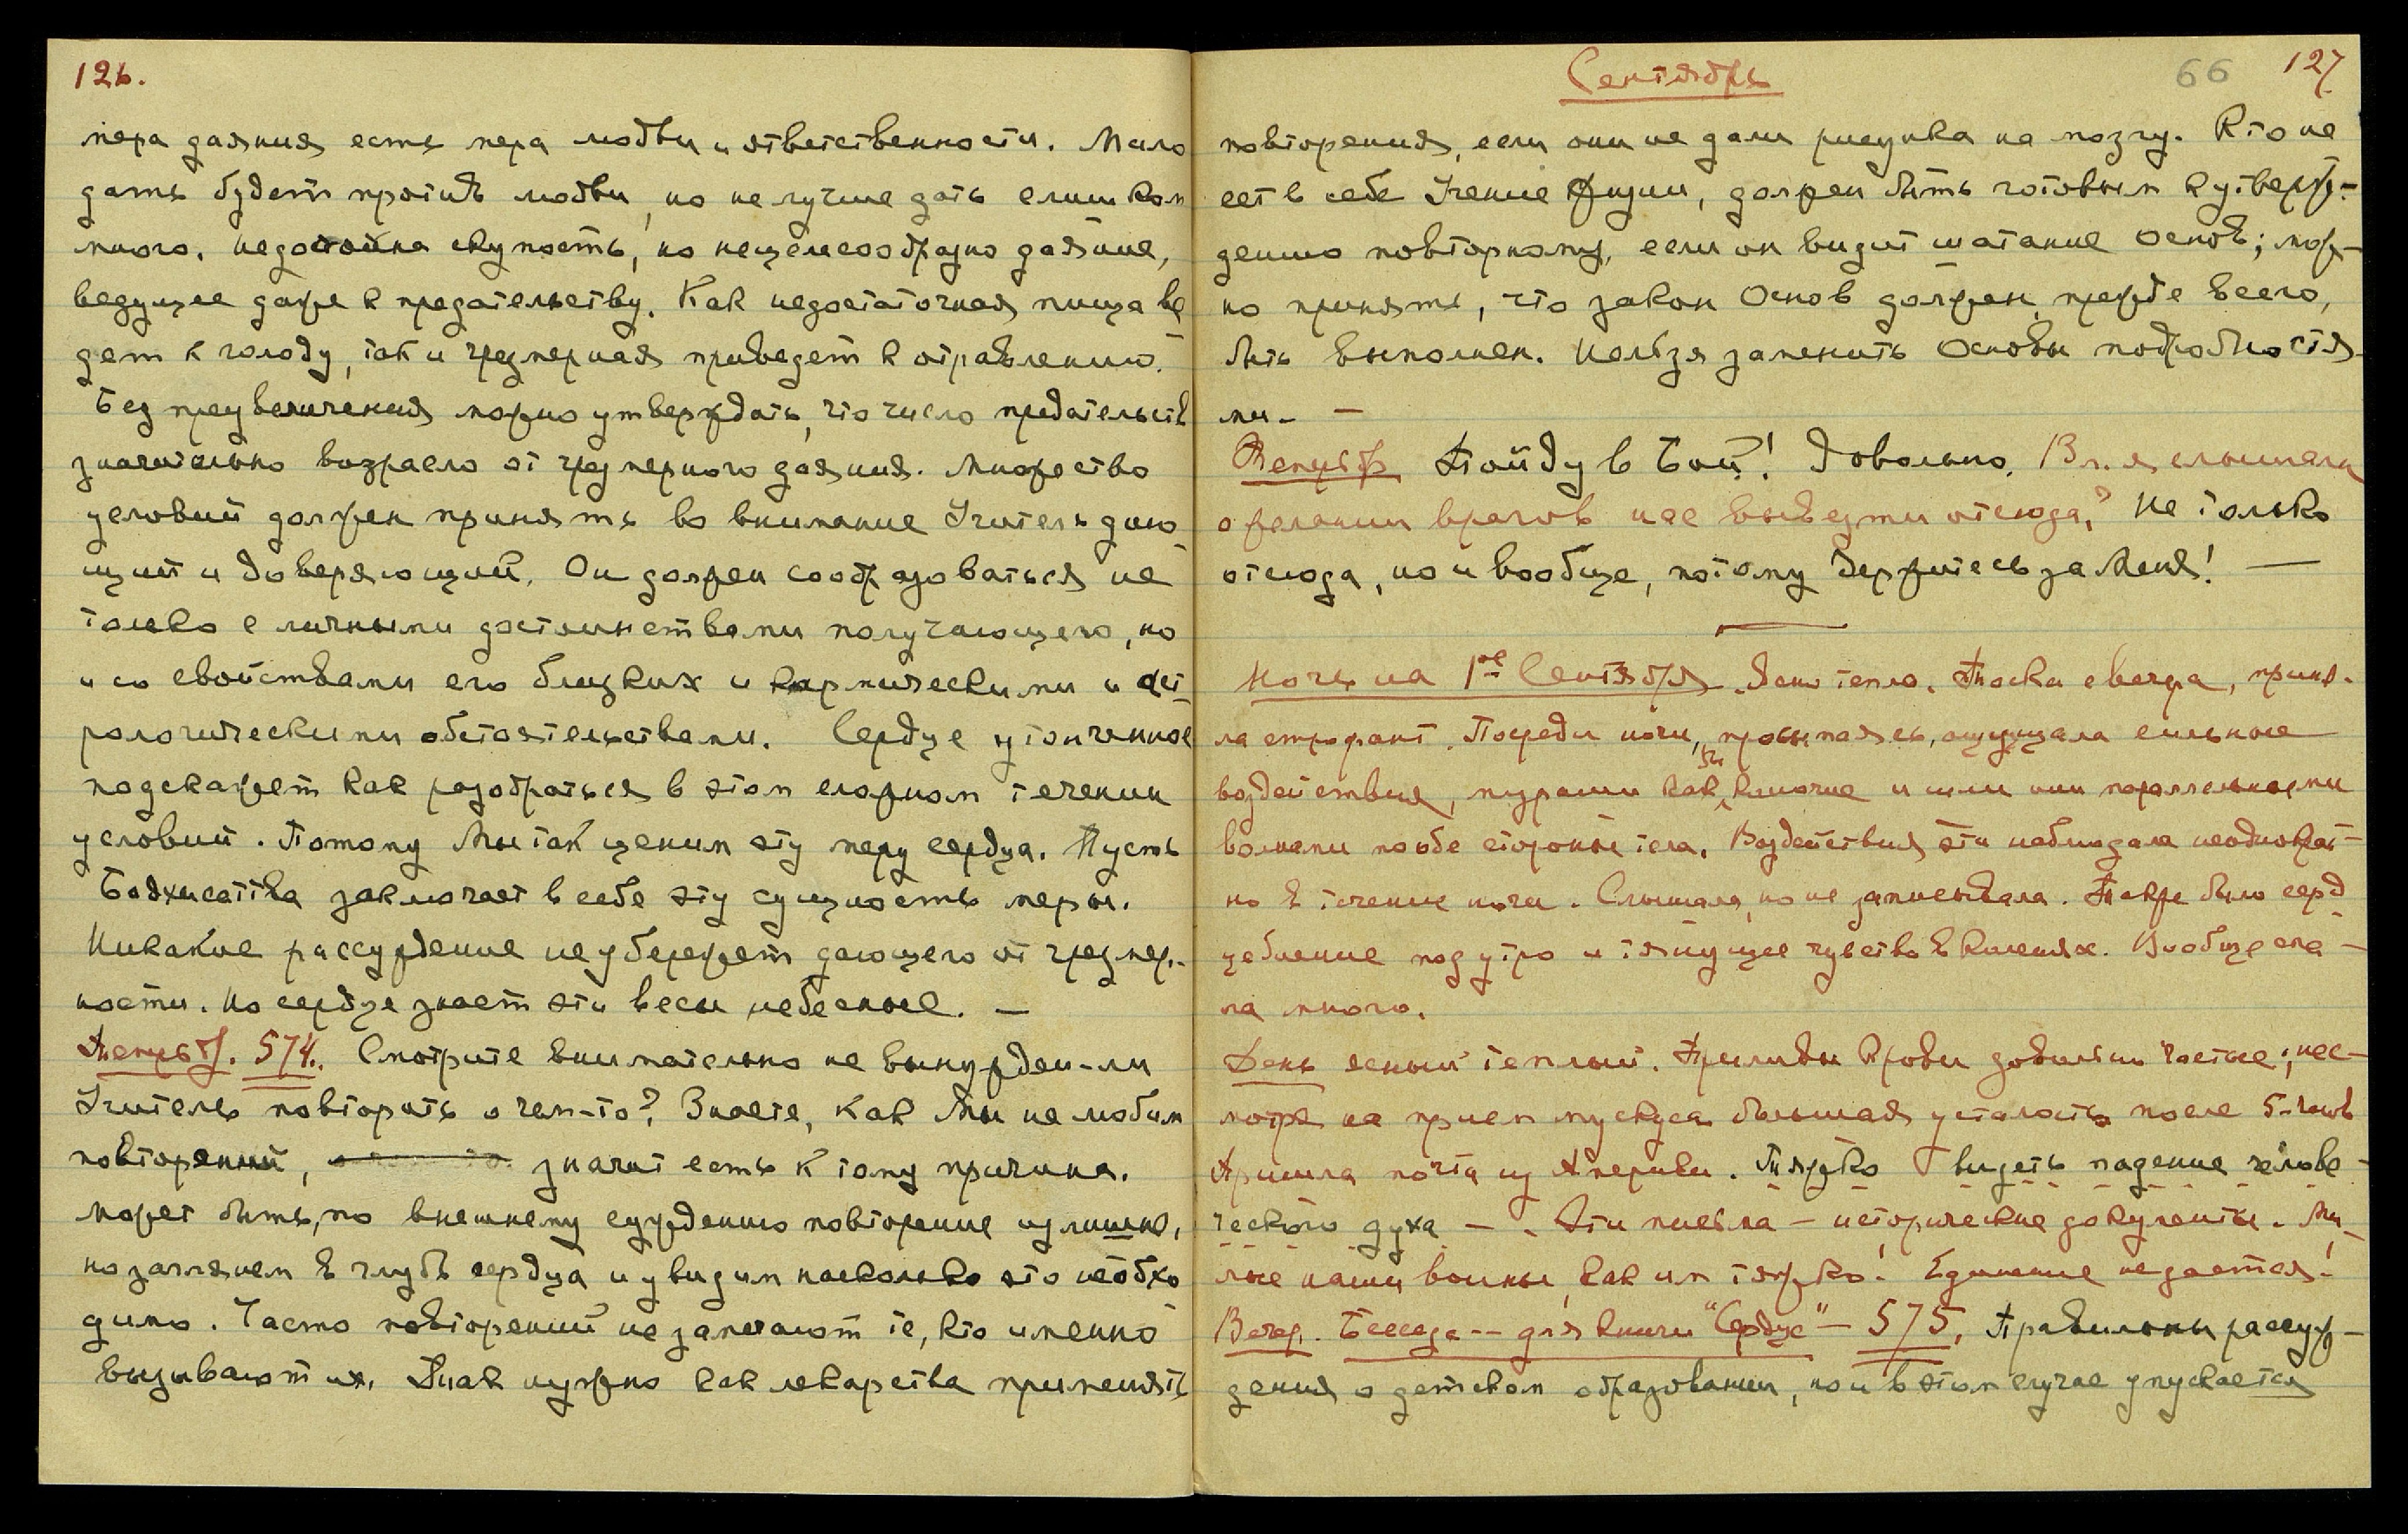 126.
мера даяния есть мера любви и ответственности. Мало
дать будет против любви, но не лучше дать слишком
много. Недостойна скупость, но нецелесообразно даяние,
ведущее даже к предательству. Как недостаточная пища ве
дет к голоду, так и чрезмерная приведет к отравлению.
Без преувеличения можно утверждать, что число предательств
значительно возрасло от чрезмерного даяния. Множество
условий должен принять во внимание Учитель даю
щий и доверяющий. Он должен сообразоваться не
только с личными достоинствами получающего, но
и со свойствами его близких и кармическими и аст
рологическими обстоятельствами. Сердце утонченное
подскажет как разобраться в этом сложном течении
условий. Потому Мы так ценим эту меру сердца. Путь
Бодхисаттва заключает в себе эту сущность меры.
Никакие рассуждение не убережет дающего от чрезмер-
ности. Но сердце знает эти весы небесные. —
574. Смотрите внимательно не вынужден-ли
Учитель повторить о чем-то? Знаете, как Мы не любим
повторений, значит есть к тому причина.
Может быть, по внешнему суждению повторение излишне,
но заглянем в глубь сердца и увидим насколько это необхо
димо. Часто повторений не замечают те, кто именно
вызывают их. Так нужно как лекарства применять
Сентябрь
66 127
повторения, если они не дали рисунка на мозгу. Кто не
сет в себе Учение Жизни, должен быть готовым к утверж-
дению повторному, если он видит шатание основ; мож-
но принять, что закон Основ должен, прежде всего,
быть выполнен. Нельзя заменить Основы подробностя-
ми. —
Пойду в Бой! Довольно. Вл. я слышала
о желании врагов нас вывезти отсюда? Не только
отсюда, но и вообще, потому держитесь за Меня!—
Ночь на 1ое Сентября. Ясно тепло. Тоска с вечера, приня-
ла строфант. Посреди ночи, просыпаясь, ощущала сильные
воздействия, мураши как бы колючие и шли они параллельными
волнами по обе стороны тела. Воздействия эти наблюдала неоднократ-
но в течение ночи. Слышала, но не записывала. Также было серд
цебиение под утро и тянущее чувство в коленях. Вообще спа-
ла много.
День ясный теплый. Приливы крови довольно частые; нес-
мотря на прием мускуса большая усталость после 5-часов
Пришла почта из Америки. Тяжко видеть падение челове-
ческого духа — . Эти письма — исторические документы. Ми-
лые наши воины, как им тяжко! Единение не дается!
Вечер. Беседа -- для книги "Сердце" — 575. Правильны рассуж-
дения о детском образовании, но и в этом случае упускается